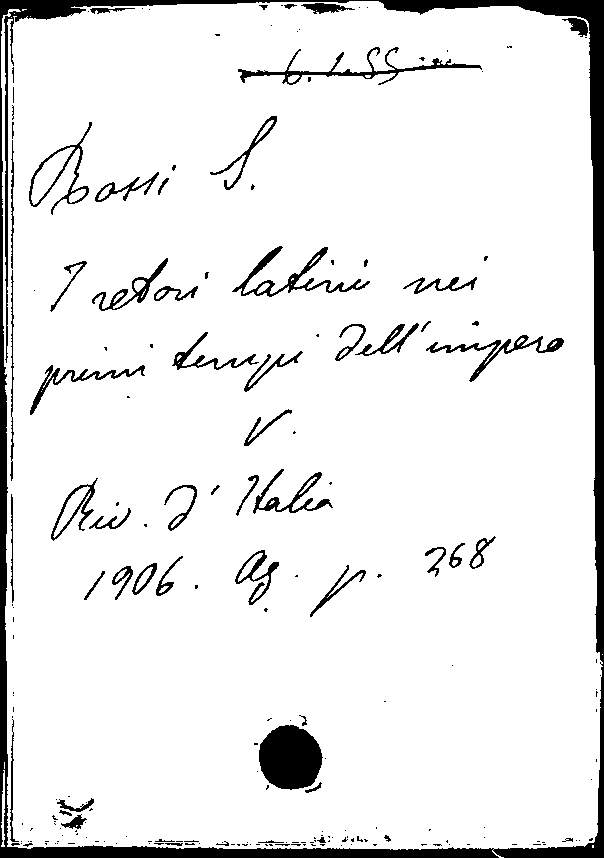 Rossi S.
I retori latini nei
primi tempi dell'impero
V.
Riv. d'Italia
1906. Ag. p. 268